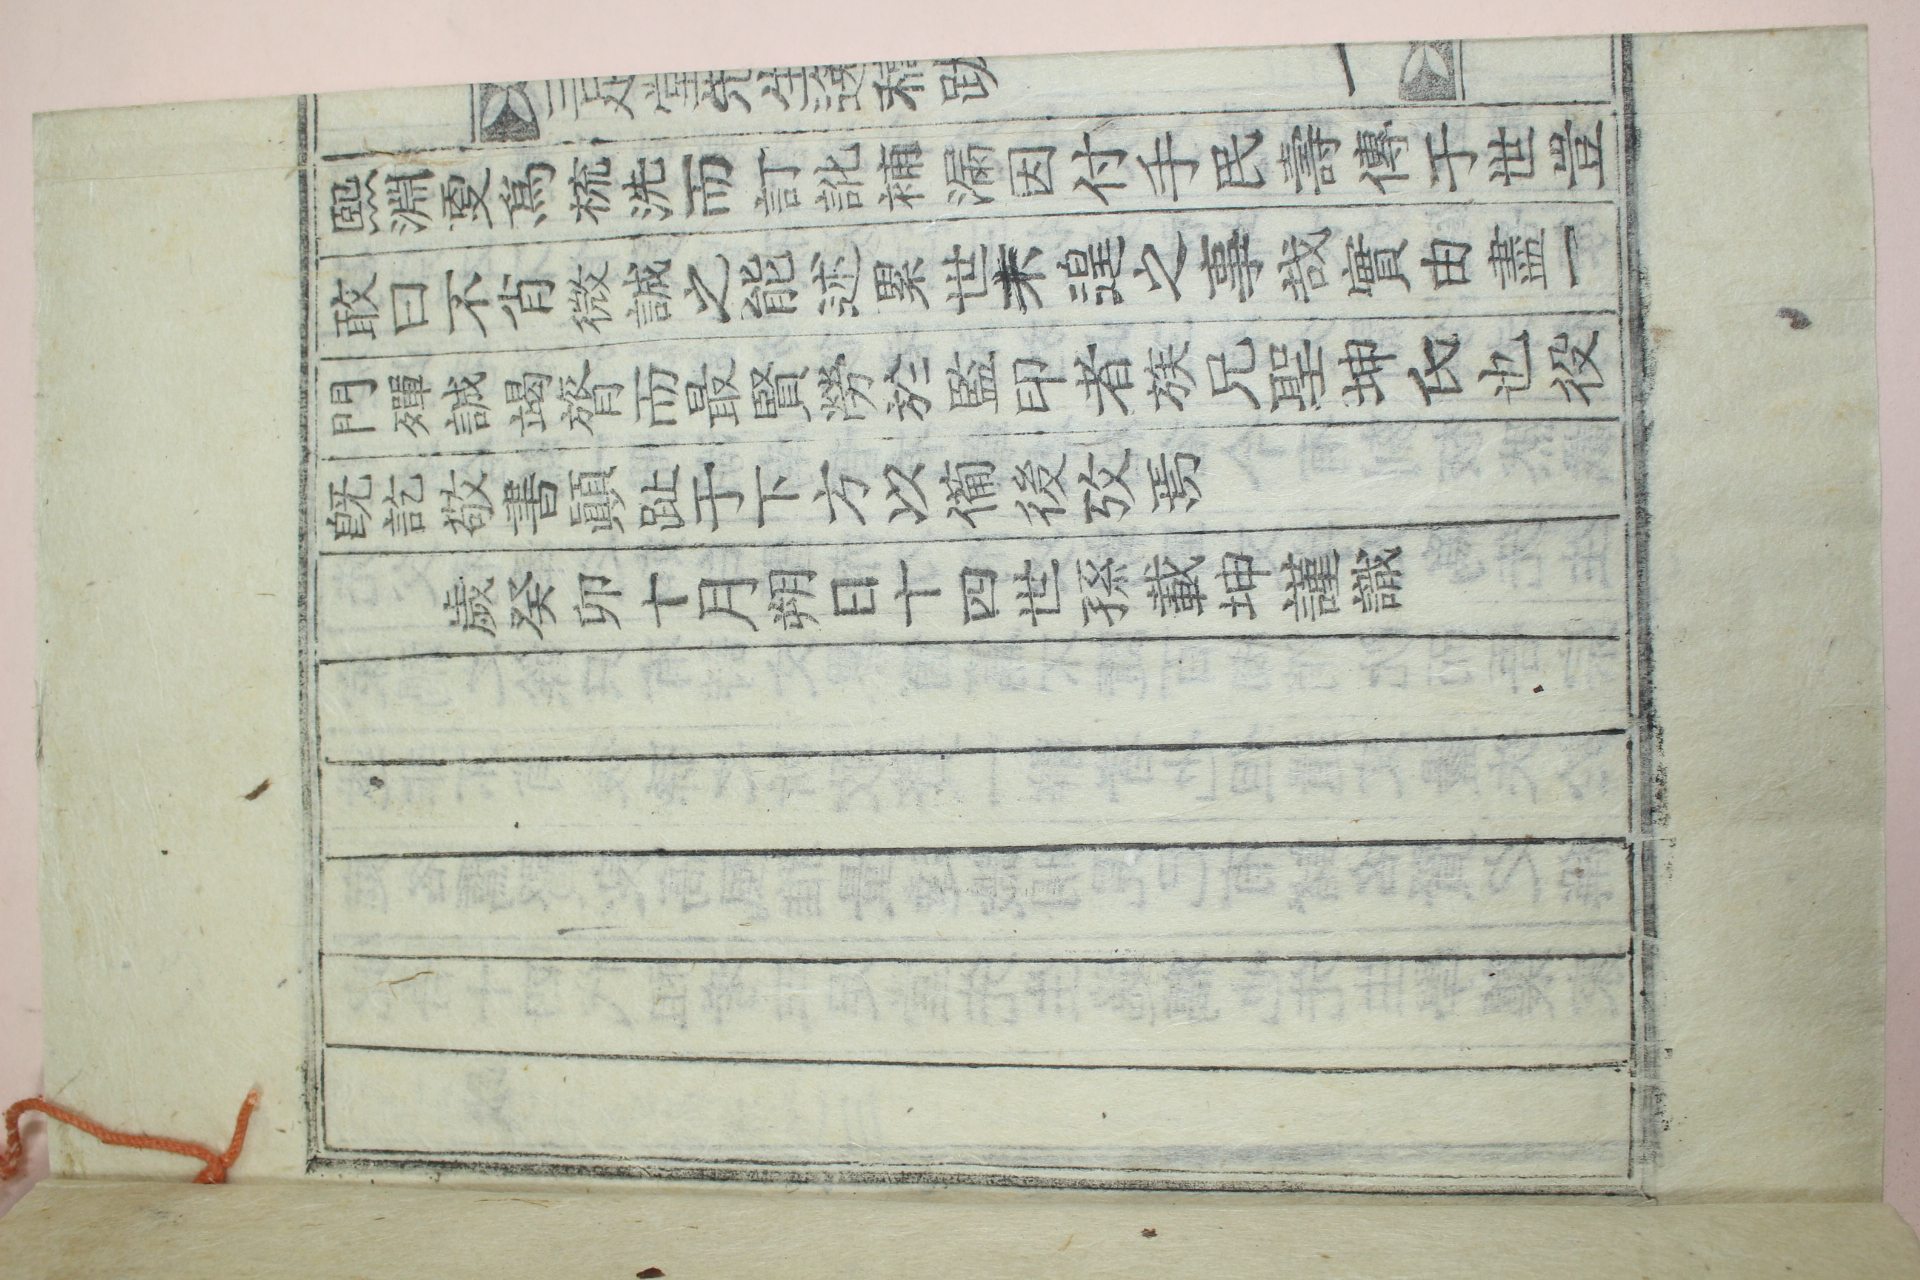 三足堂先生逸稿跋 一
熙淵爲梳洗而訂訛補漏因付手民壽傳于世豈
敢曰不肖微誠之能述累世未遑之事哉實由盡一
門殫誠竭膂而最賢勞於監印者族兄聖坤氏也役
旣訖敬書顚趾于下方以備後攷焉
歲癸卯十月朔日十四世孫載坤謹識